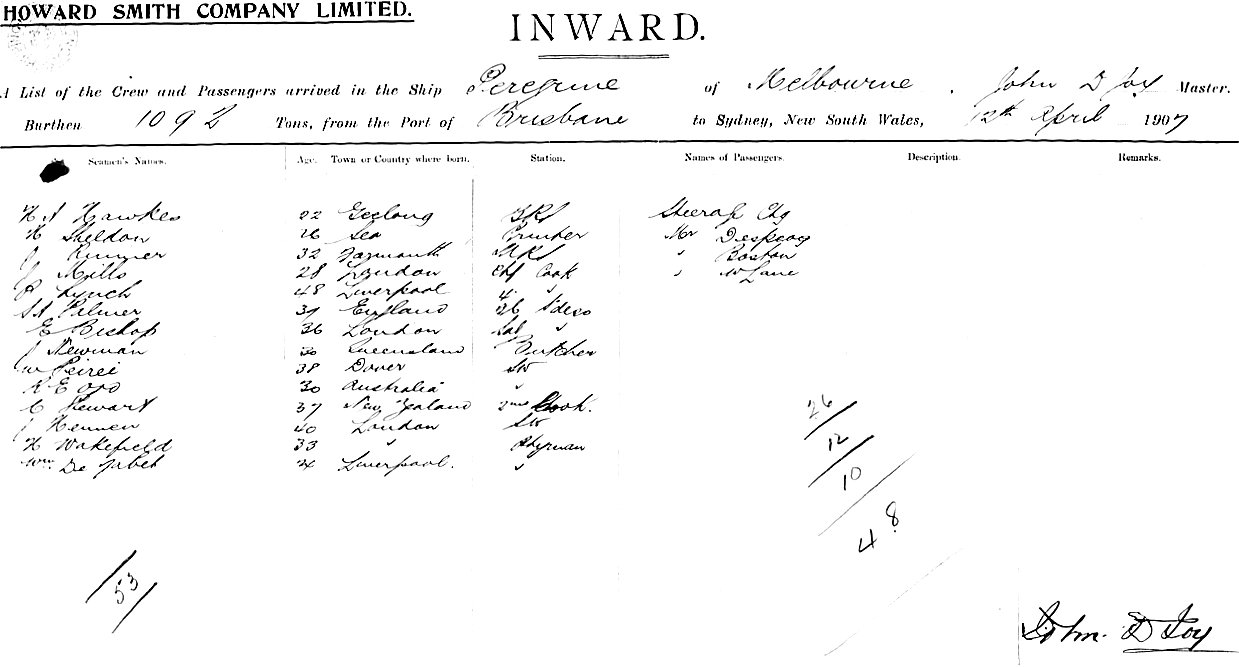 HOWARD SMITH COMPANY LIMITED.
INWARD.
A List of the Crew and Passengers arrived in the Ship Peregrine of Melbourne, John D Joy Master.
Burthen 1092 Tons, from the Port of Brisbane to Sydney, New South Wales, 12th April 1907
Seamen's Names. Age. Town or Country where born. Station. Names of Passengers. Description. Remarks.
Hawkes 22 Geelong
H Sheldon 26 Sea Mr
J 32 Yarmouth " Boston
J Mills 28 London Chf Cook " Lane
Lynch 48 Liverpool 4 "
Palmer 37 England
E Bishop 36 London "
J Newman 30 Queensland Butcher
W 38 Dover
R E 30 Australia "
C Stewart 37 New Zealand 2nd Cook.
J 40 London
H Wakefield 33 "
Wm De Liverpool. "
26
12
10
48
53
John D Joy